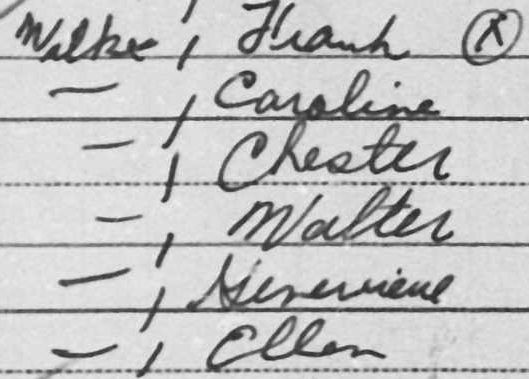 Wilke, Frank Ⓧ
—, Caroline
—, Chester
—, Walter
—, Genevieve
—, Ellen